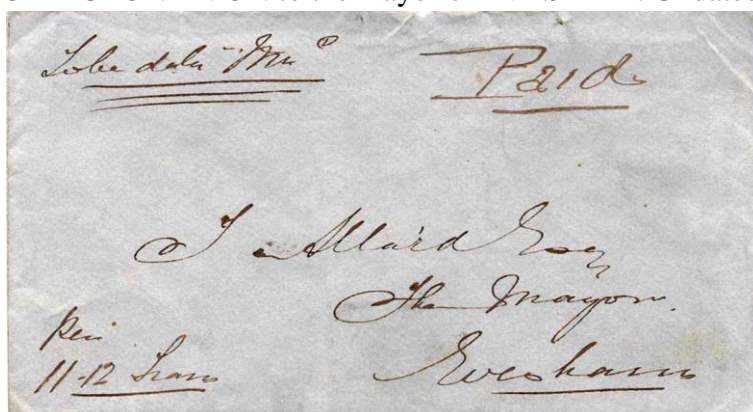 To be deld Imm
Paid
T Allard Esq
The Mayor
Evesham
Per
11-12 Train